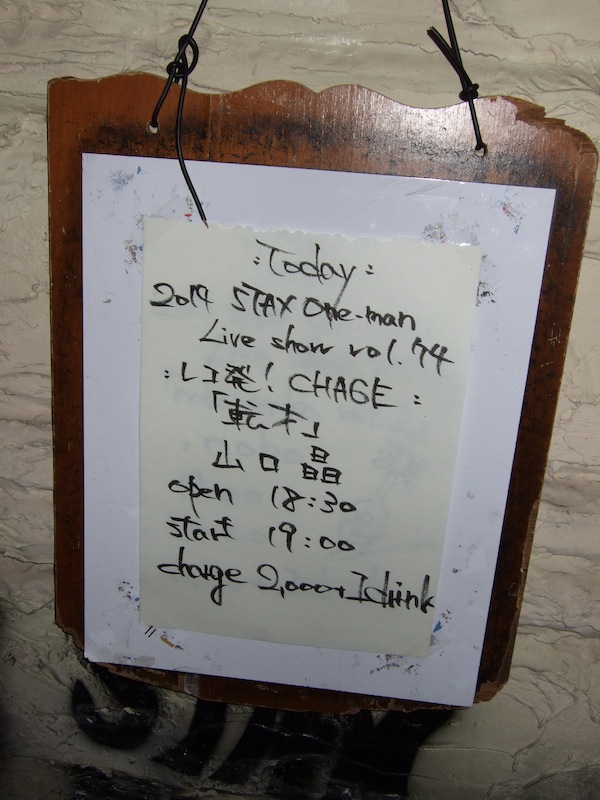 :Today:
2014 STAX One-man
Live show vol.74
:レコ発! CHAGE:
「転才」
山口晶
open 18:30
start 19:00
charge 2,000+1drink